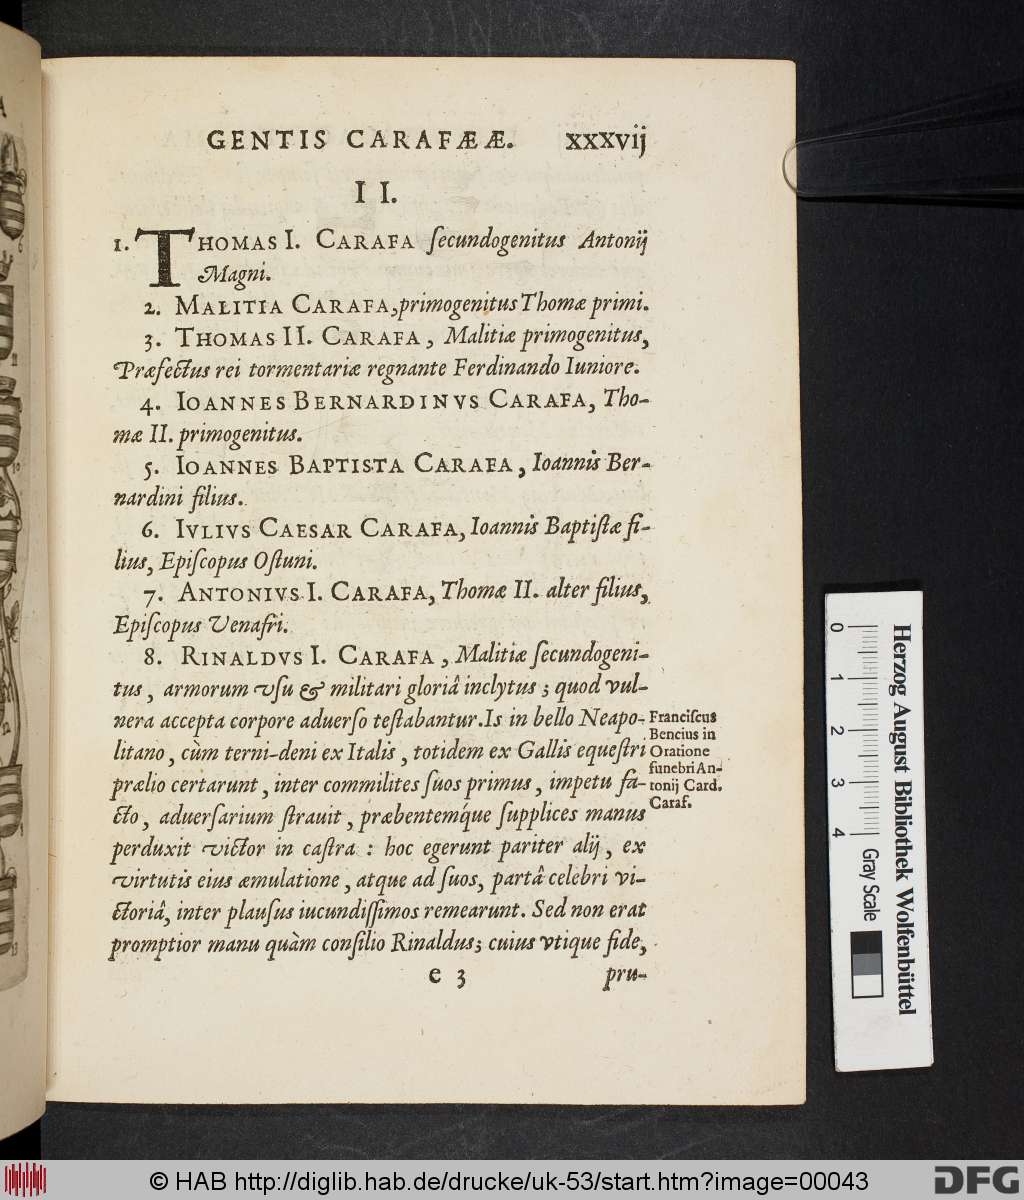 GENTIS CARAFÆÆ. xxxvij
II.
1. THOMAS I. CARAFA ſecundogenitus Antonij
Magni.
2. MALITIA CARAFA, primogenitus Thomæ primi.
3. THOMAS II. CARAFA, Malitiæ primogenitus,
Præfectus rei tormentariæ regnante Ferdinando Iuniore.
4. IOANNES BERNARDINVS CARAFA, Tho-
mæ II. primogenitus.
5. IOANNES BAPTISTA CARAFA, Ioannis Ber-
nardini filius.
6. IVLIVS CAESAR CARAFA, Ioannis Baptiſtæ fi-
lius, Epiſcopus Oſtuni.
7. ANTONIVS I. CARAFA, Thomæ II. alter filius,
Epiſcopus Venafri.
8. RINALDVS I. CARAFA, Malitiæ ſecundogeni-
tus, armorum vſu & militari gloriâ inclytus; quod vul-
nera accepta corpore aduerſo teſtabantur. Is in bello Neapo-
litano, cùm terni-deni ex Italis, totidem ex Gallis equeſtri
prælio certarunt, inter commilites ſuos primus, impetu fa-
cto, aduerſarium ſtrauit, præbentemq́ue ſupplices manus
perduxit victor in caſtra: hoc egerunt pariter alij, ex
virtutis eius æmulatione, atque ad ſuos, partâ celebri vi-
ctoriâ, inter plauſus iucundiſſimos remearunt. Sed non erat
promptior manu quàm conſilio Rinaldus; cuius vtique fide,
e 3 pru-
Franciſcus
Bencius in
Oratione
funebri An-
tonij Card.
Caraf.
0
1
2
3
4
Gray Scale
Herzog August Bibliothek Wolfenbüttel
© HAB http://diglib.hab.de/drucke/uk-53/start.htm?image=00043
DFG